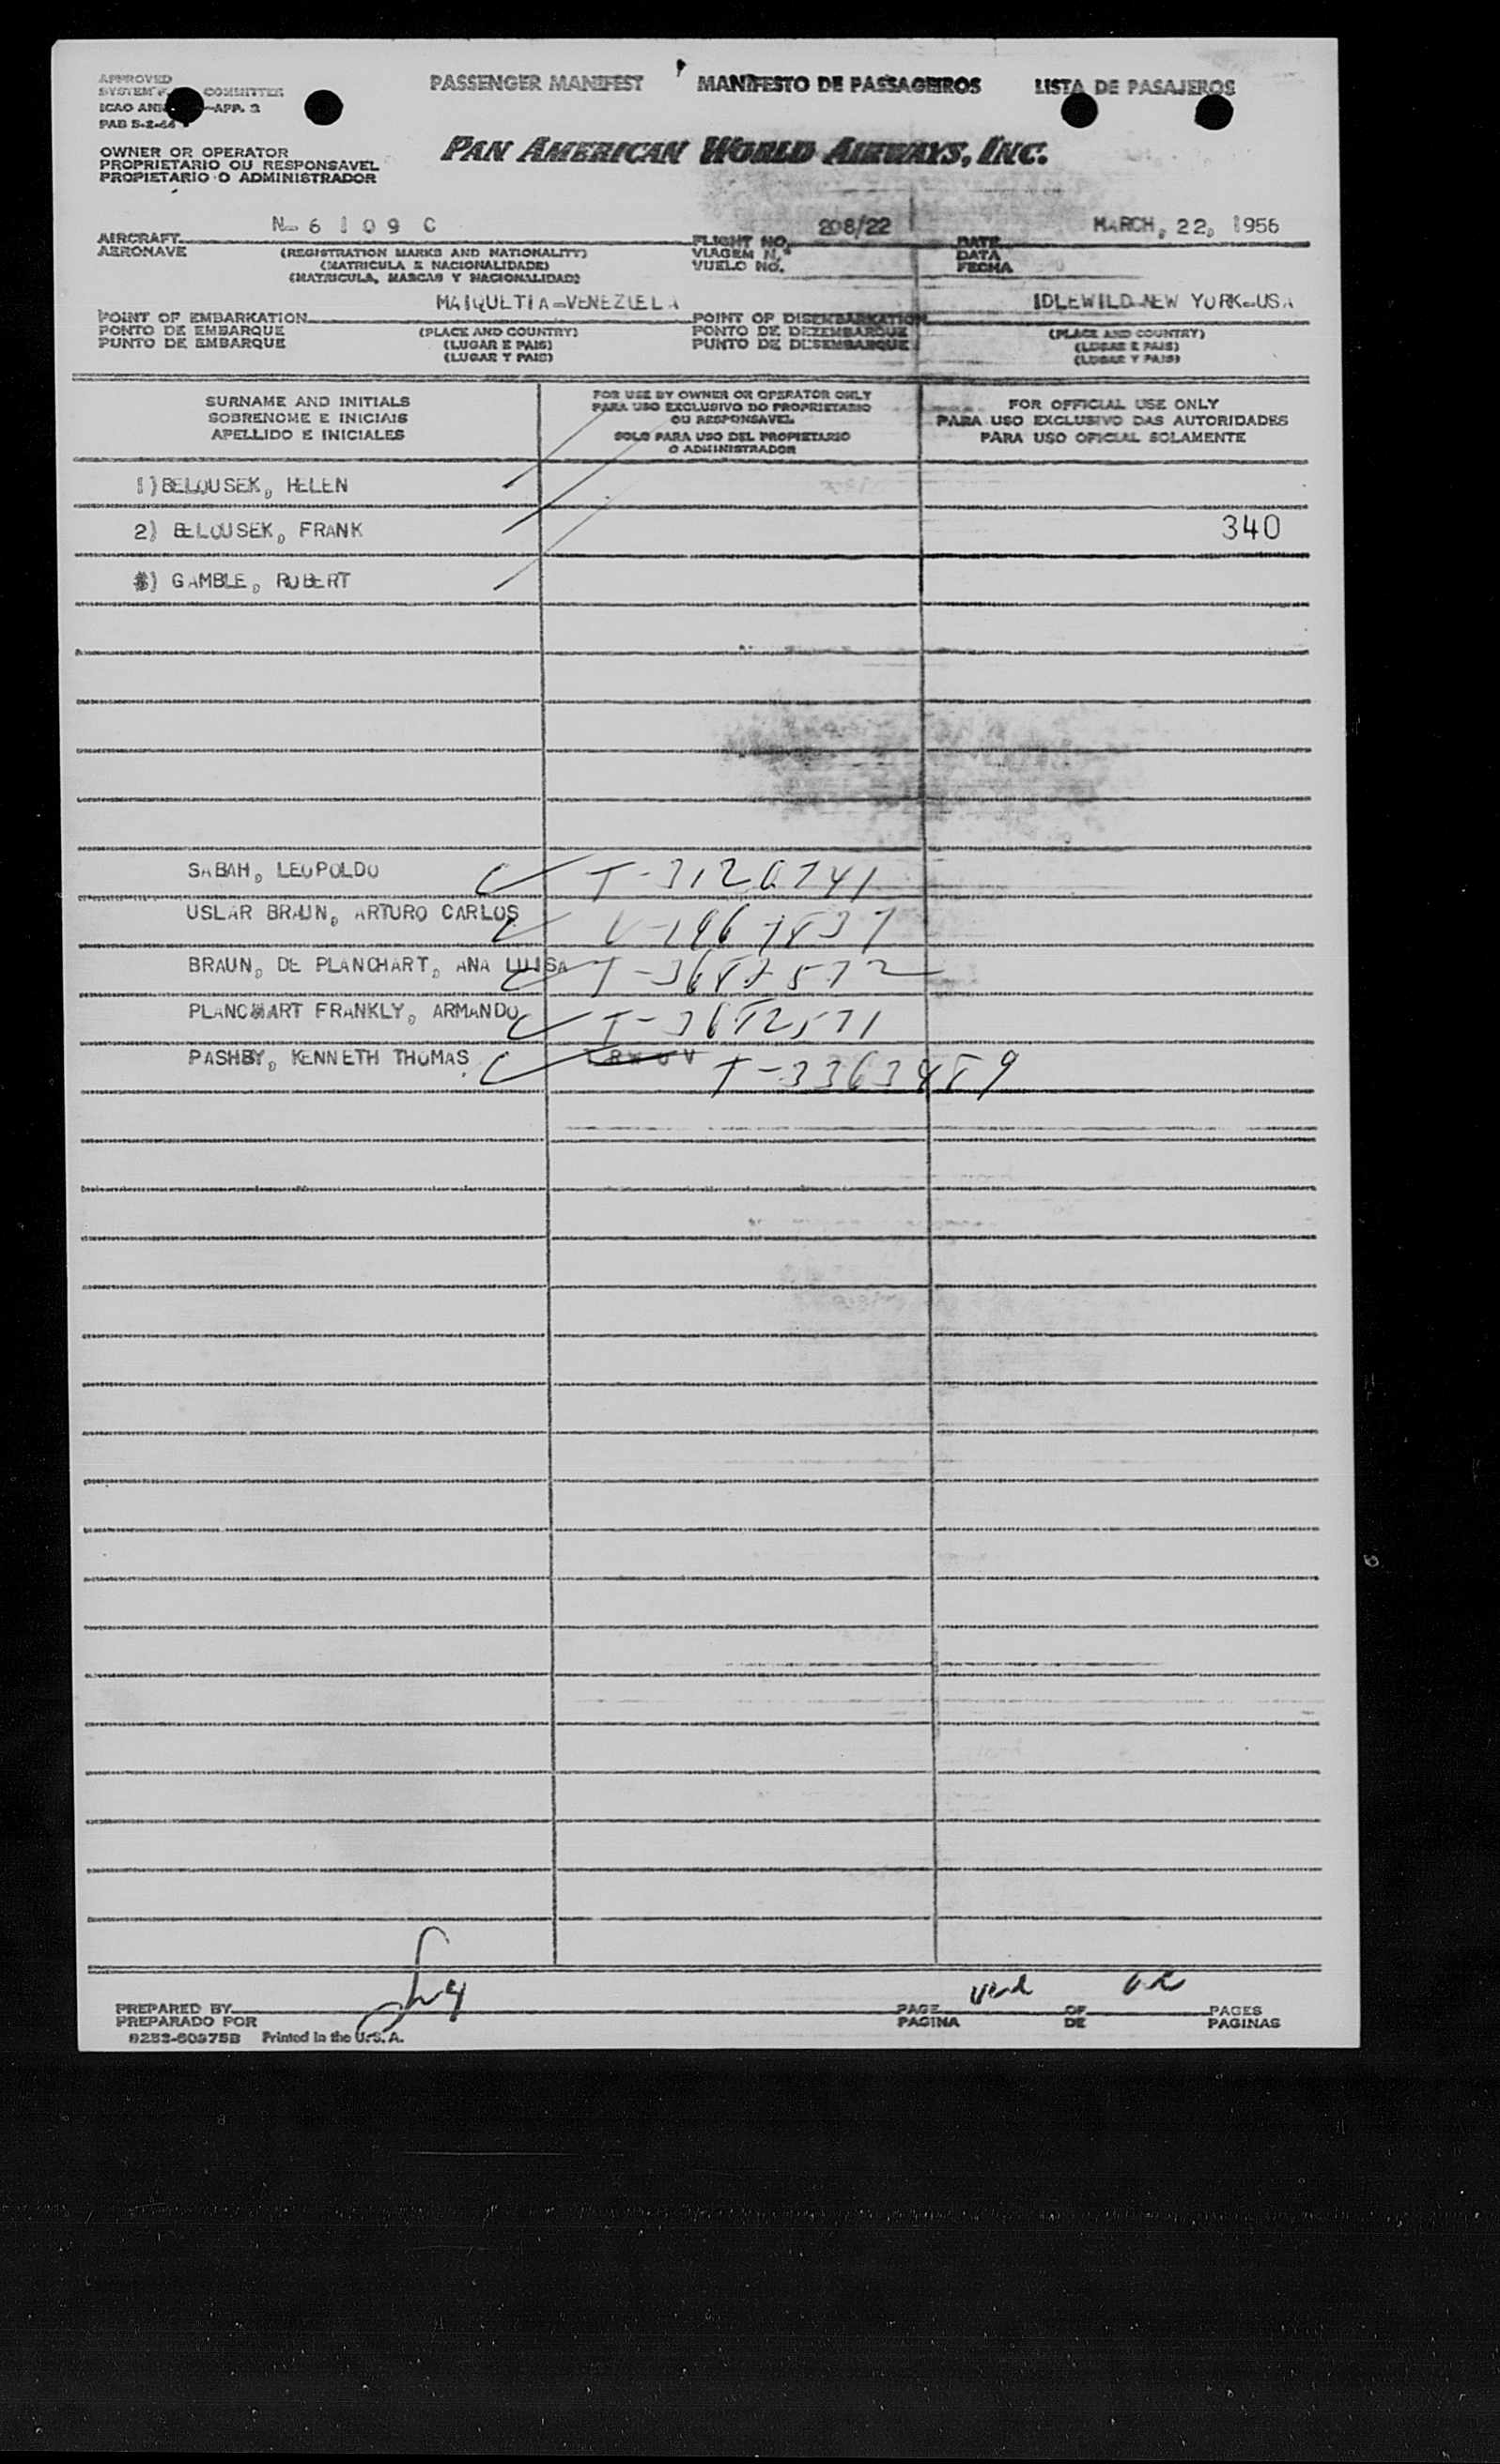 APPROVED
SYSTEM COMMITTEE
ICAO APP. 3
PAB 5-2-44
PASSENGER MANIFEST MANIFESTO DE PASSAGEIROS LISTA DE PASAJEROS
OWNER OR OPERATOR
PROPRIETARIO OU RESPONSAVEL
PROPIETARIO O ADMINISTRADOR
PAN AMERICAN WORLD AIRWAYS, INC.
N-6109C 208/22 MARCH, 22, 1956
AIRCRAFT FLIGHT NO. DATE
AERONAVE (REGISTRATION MARKS AND NATIONALITY) VIAGEM N.º DATA
(MATRICULA E NACIONALIDADE) VUELO NO. FECHA
(MATRICULA, MARCAS Y NACIONALIDAD)
MAIQUETIA-VENEZUELA IDLEWILD-NEW YORK-USA
POINT OF EMBARKATION POINT OF DISEMBARKATION
PONTO DE EMBARQUE (PLACE AND COUNTRY) PONTO DE DEZEMBARQUE (PLACE AND COUNTRY)
PUNTO DE EMBARQUE (LUGAR E PAIS) PUNTO DE DESEMBARQUE (LUGAR E PAIS)
(LUGAR Y PAIS) (LUGAR Y PAIS)
SURNAME AND INITIALS
SOBRENOME E INICIAIS
APELLIDO E INICIALES
FOR USE BY OWNER OR OPERATOR ONLY
PARA USO EXCLUSIVO DO PROPRIETARIO
OU RESPONSAVEL
SOLO PARA USO DEL PROPIETARIO
O ADMINISTRADOR
FOR OFFICIAL USE ONLY
PARA USO EXCLUSIVO DAS AUTORIDADES
PARA USO OFICIAL SOLAMENTE
1) BELOUSEK, HELEN
2) BELOUSEK, FRANK 340
3) GAMBLE, ROBERT
SABAH, LEOPOLDO T-3126741
USLAR BRAUN, ARTURO CARLOS
BRAUN, DE PLANCHART, ANA LUISA T-3682572
PLANCHART FRANKLY, ARMANDO T-3682571
PASHBY, KENNETH THOMAS T-3363489
PREPARED BY PAGE OF PAGES
PREPARADO POR PAGINA DE PAGINAS
8253-60975B Printed in the U.S.A.